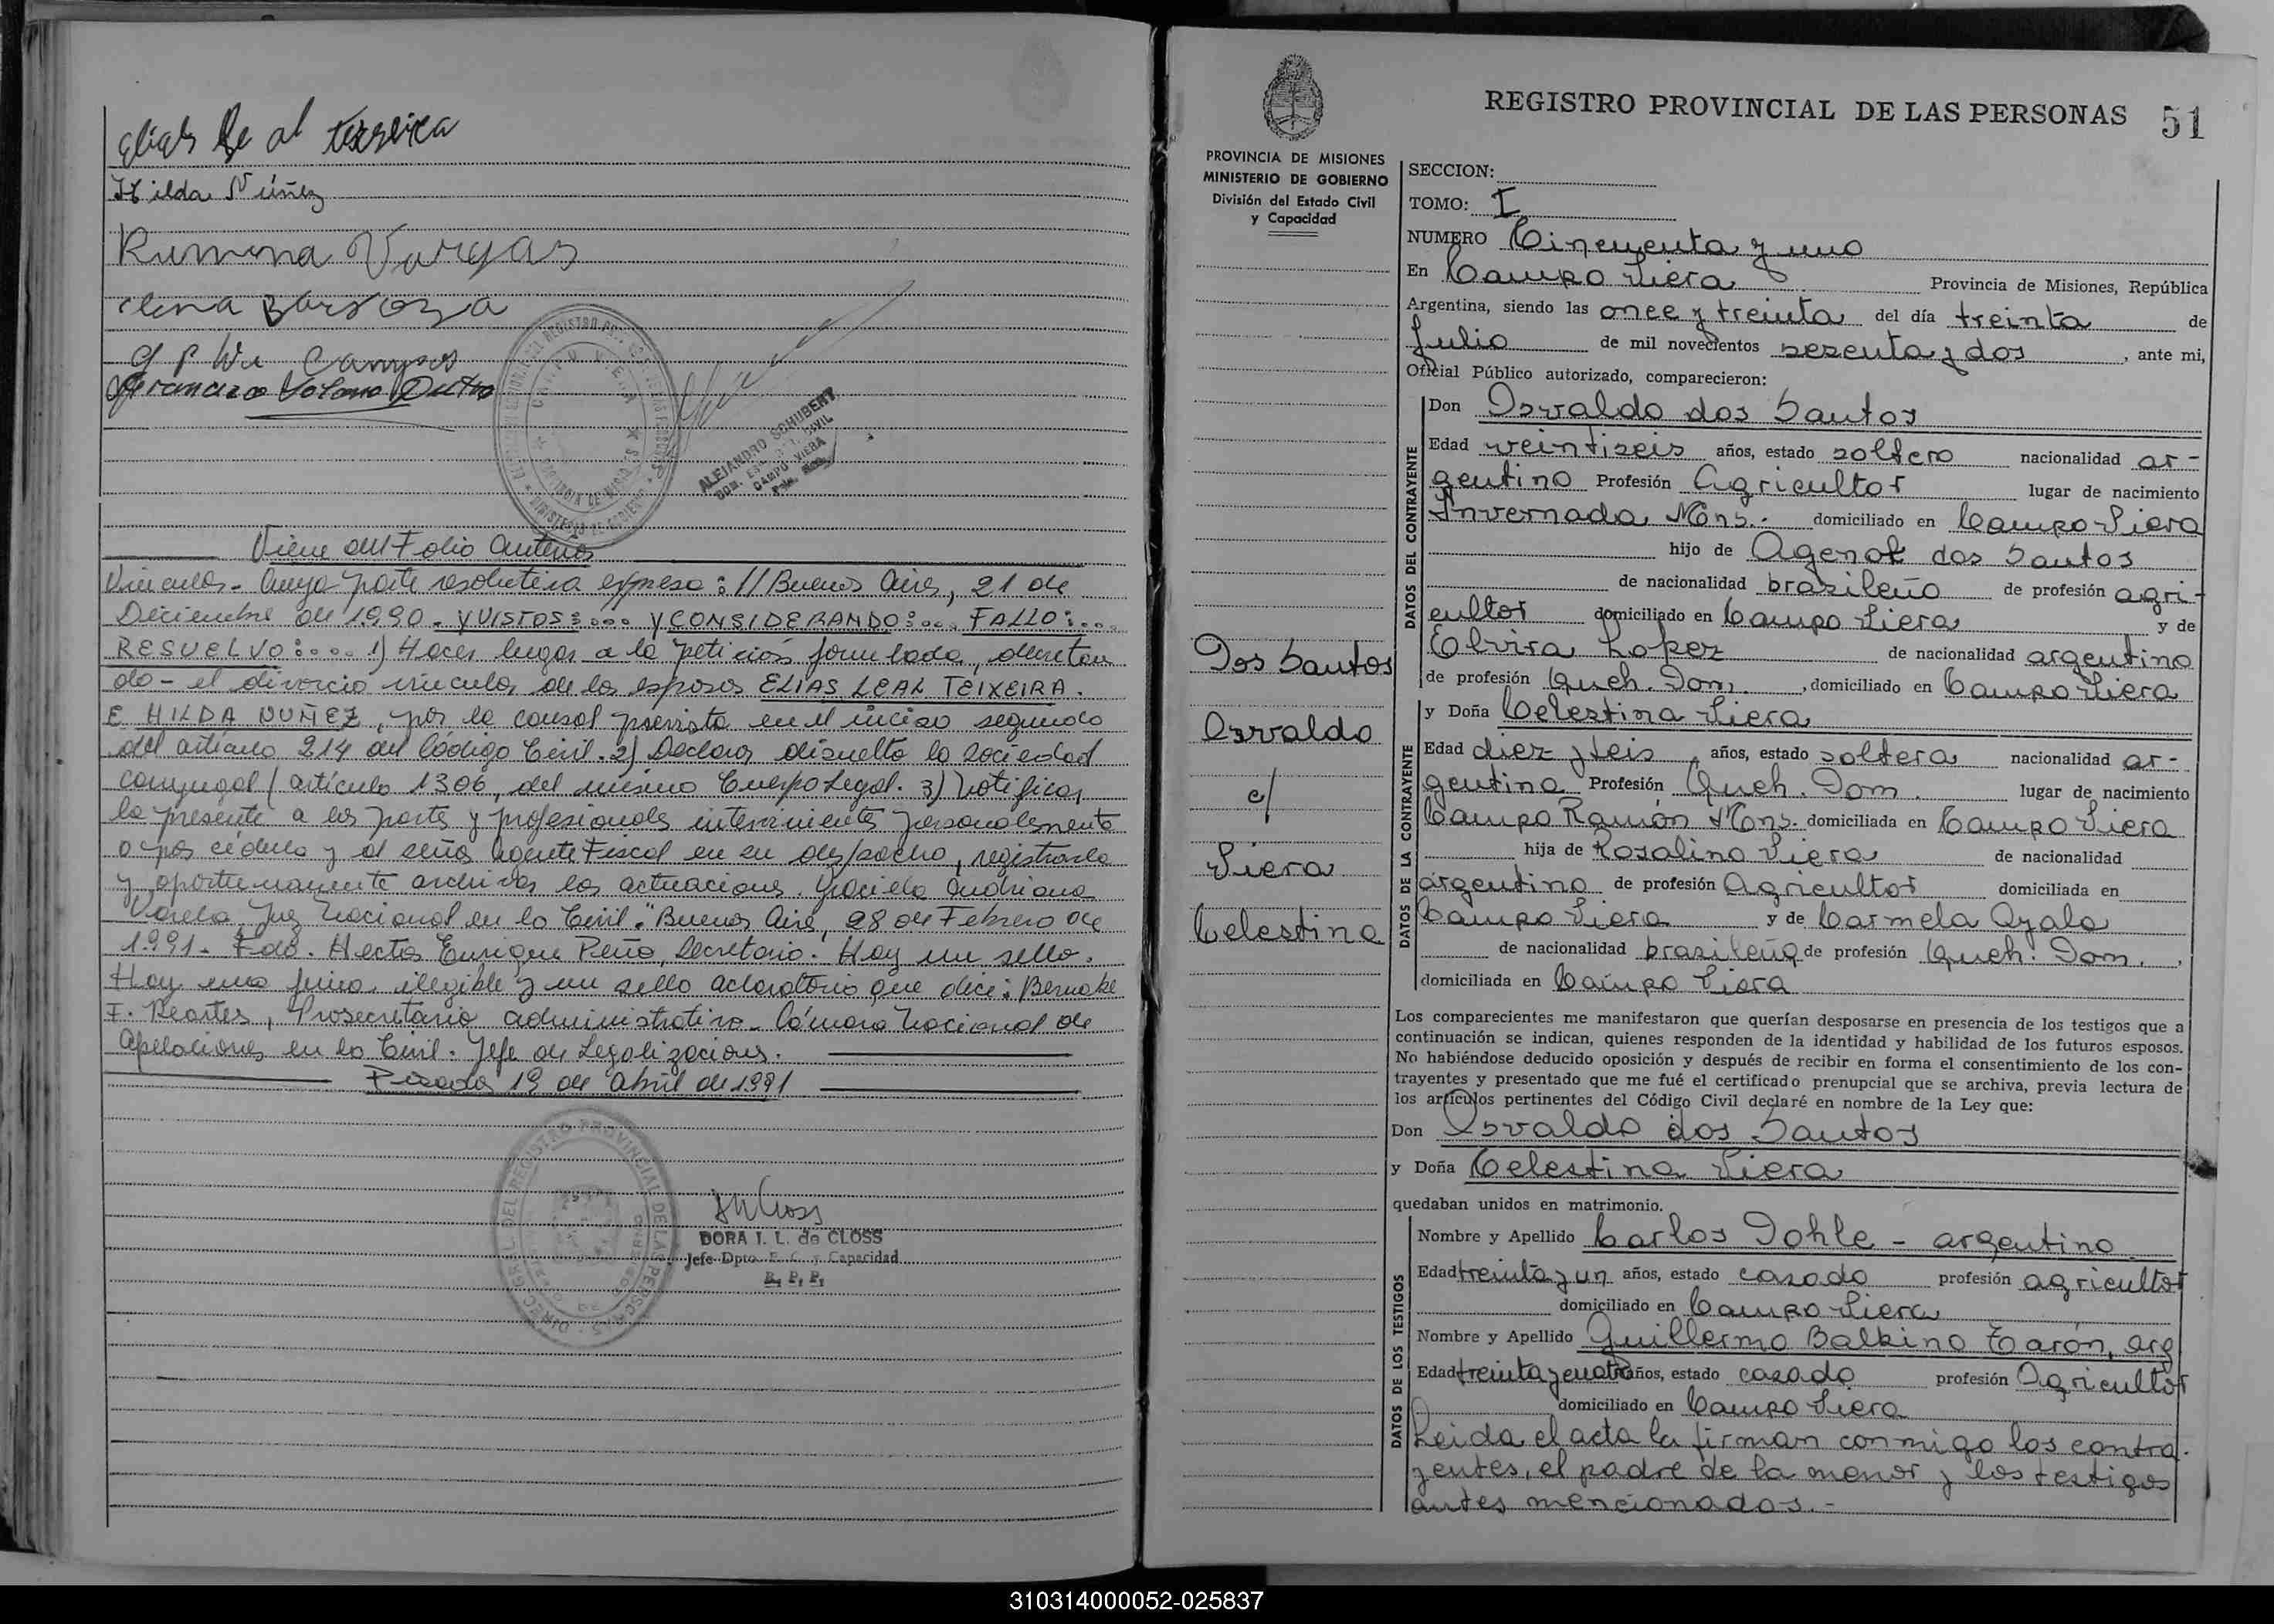 Elias Le al teixeira
Hilda Núñez
Ramona Vargas
elena Barboza
Campos
Francisco Solano Dutra
ALEJANDRO SCHUBERT
CAMPO VIERA
Viene del Folio Anterior
Vincular - Cuya parte resolutiva expresa: // Buenos Aires, 21 de
Diciembre de 1990. Y VISTOS:.... Y CONSIDERANDO:.... FALLO:....
RESUELVO:.... 1) Hacer lugar a la petición formulada, decretan
do - el divorcio vincular de los esposos ELIAS LEAL TEIXEIRA.
E HILDA NUÑEZ, por la causal prevista en el inciso segundo
del artículo 214 del Código Civil. 2) Declarar disuelta la sociedad
conyugal (artículo 1306, del mismo Cuerpo Legal. 3) Notificar
la presente a las partes y profesionales intervinientes personalmente
o por cédula y al señor Agente Fiscal en su despacho, registrarla
y oportunamente archivar las actuaciones. Graciela Adriana
Varela Juez Nacional en lo Civil." Buenos Aires, 28 de Febrero de
1991. Fdo. Hector Enrique Peña, Secretario. Hay un sello.
Hay una firma ilegible y un sello aclaratorio que dice:
F. Reartes, Prosecretario administrativo - Cámara Nacional de
Apelaciones en lo Civil. Jefe de Legalizaciones.
Posadas 19 de abril de 1991
DORA I. L. de CLOSS
Jefe Dpto. E. C. y Capacidad
R. P. P.
REGISTRO PROVINCIAL DE LAS PERSONAS 51
PROVINCIA DE MISIONES
MINISTERIO DE GOBIERNO
División del Estado Civil
y Capacidad
Dos Santos
Osvaldo
c/
Viera
Celestina
SECCION:
TOMO: I
NUMERO Cincuenta y uno
En Campo Viera Provincia de Misiones, República
Argentina, siendo las once y treinta del día treinta de
Julio de mil novecientos sesenta y dos, ante mi,
Oficial Público autorizado, comparecieron:
DATOS DEL CONTRAYENTE
Don Osvaldo dos Santos
Edad veintiseis años, estado soltero nacionalidad ar-
gentino Profesión Agricultor lugar de nacimiento
Invernada Mns. domiciliado en Campo Viera
hijo de Agenor dos Santos
de nacionalidad brasileño de profesión agri-
cultor domiciliado en Campo Viera y de
Elvira Lopez de nacionalidad argentino
de profesión Queh. Dom., domiciliado en Campo Viera
DATOS DE LA CONTRAYENTE
y Doña Celestina Viera
Edad diez y seis años, estado soltera nacionalidad ar-
gentina Profesión Queh. Dom. lugar de nacimiento
Campo Ramón Mns. domiciliada en Campo Viera
hija de Rosalino Viera de nacionalidad
argentino de profesión Agricultor domiciliada en
Campo Viera y de Carmela Ayala
de nacionalidad brasileña de profesión Queh. Dom.,
domiciliada en Campo Viera
Los comparecientes me manifestaron que querían desposarse en presencia de los testigos que a
continuación se indican, quienes responden de la identidad y habilidad de los futuros esposos.
No habiéndose deducido oposición y después de recibir en forma el consentimiento de los con-
trayentes y presentado que me fué el certificado prenupcial que se archiva, previa lectura de
los artículos pertinentes del Código Civil declaré en nombre de la Ley que:
Don Osvaldo dos Santos
y Doña Celestina Viera
quedaban unidos en matrimonio.
DATOS DE LOS TESTIGOS
Nombre y Apellido Carlos Dohle - argentino
Edad treinta y un años, estado casado profesión agricultor
domiciliado en Campo Viera
Nombre y Apellido Guillermo Balbino Tarón, arg
Edad treinta y cuatro años, estado casado profesión Agricultor
domiciliado en Campo Viera
Leida el acta la firman conmigo los contra-
yentes, el padre de la menor y los testigos
antes mencionados.-
310314000052-025837